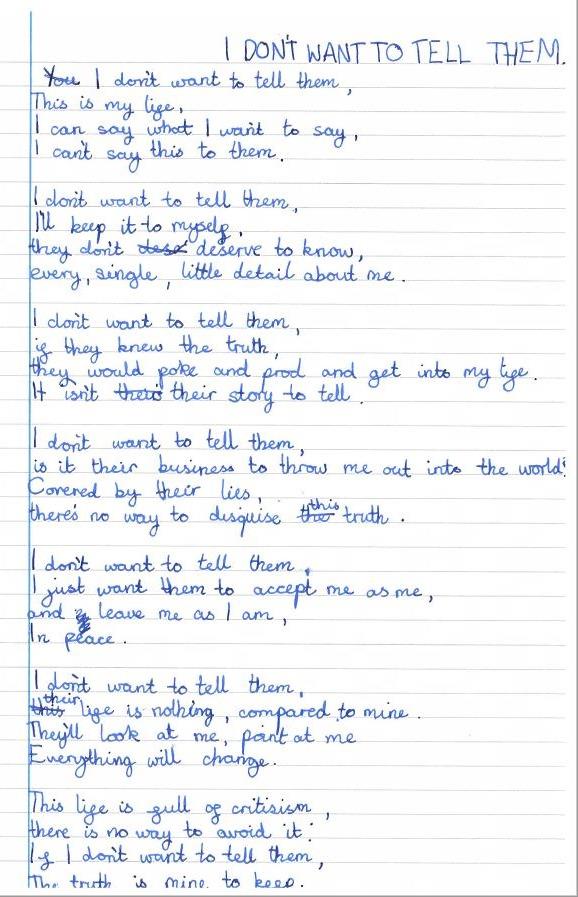 I DON'T WANT TO TELL THEM.
You I don't want to tell them,
This is my life,
I can say what I want to say,
I can't say this to them.
I don't want to tell them,
I'll keep it to myself,
they don't dese deserve to know,
every, single, little detail about me.
I don't want to tell them,
if they knew the truth,
they would poke and prod and get into my life.
It isn't their story to tell.
I don't want to tell them,
is it their business to throw me out into the world?
Covered by their lies,
there's no way to disguise this truth.
I don't want to tell them,
I just want them to accept me as me,
and leave me as I am,
In peace.
I don't want to tell them,
their life is nothing, compared to mine.
They'll look at me, point at me
Everything will change.
This life is full of critisism,
there is no way to avoid it:
If I don't want to tell them,
The truth is mine to keep.